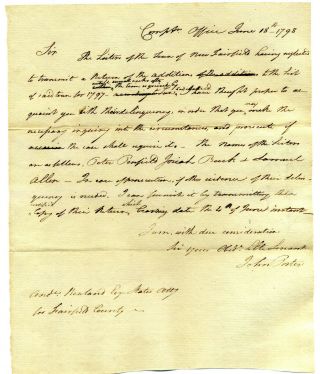 Compt^s Office June 18th 1798
Sir
The Listers of the Town of New Fairfield having neglected
to transmit a Return of the additions to the List
of said town for 1797. I have thought proper to ac
quaint you with their delinquency, in order that you may make the
necessary inquiry into the circumstances, and prosecute if
the case shall require it. The names of the Listers
are as follows. Peter Penfield Josiah Beech & Samuel
Allen — In case a prosecution, if the evidence of their delin
quency is needed. I can furnish it by transmitting a
Copy of their Return, bearing date the 4th of June instant
I am, with due consideration
Sir your Obd^t Servant
John Porter
Andw Rowland Esq^r States Att^y
for Fairfield County